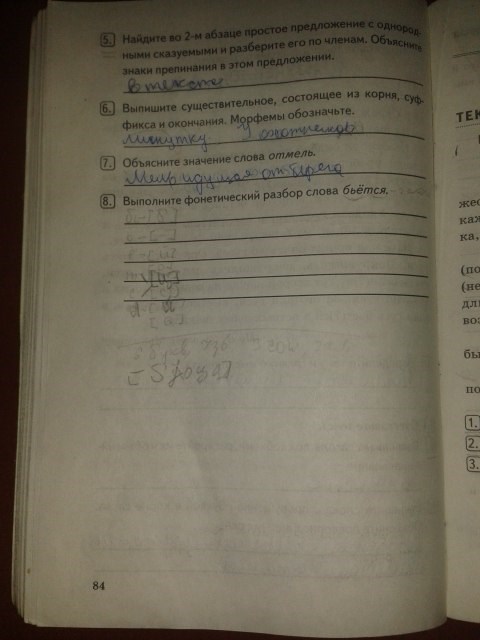 5. Найдите во 2-м абзаце простое предложение с однород-
ными сказуемыми и разберите его по членам. Объясните
знаки препинания в этом предложении.
в тексте
6. Выпишите существительное, состоящее из корня, суф-
фикса и окончания. Морфемы обозначьте.
минутку У охотников
7. Объясните значение слова отмель.
Мель идущая от берега
8. Выполните фонетический разбор слова бьётся.
84
ТЕК
жес
каж
ка,
(по
(не
дл
воз
бы
по
1.
2.
3.